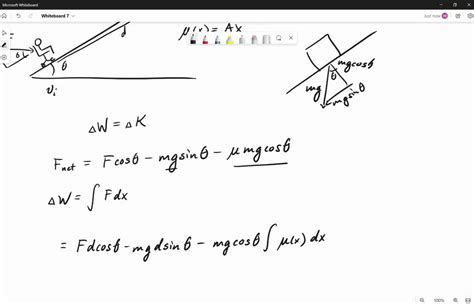 Microsoft Whiteboard
Whiteboard 7
Just now
μ(x) = Ax
d
θ
v_i
mg cosθ
θ
mg
mg sinθ
ΔW = ΔK
F_net = F cosθ − mg sinθ − μ mg cosθ
ΔW = ∫ F dx
= F d cosθ − mg d sinθ − mg cosθ ∫ μ(x) dx
100%